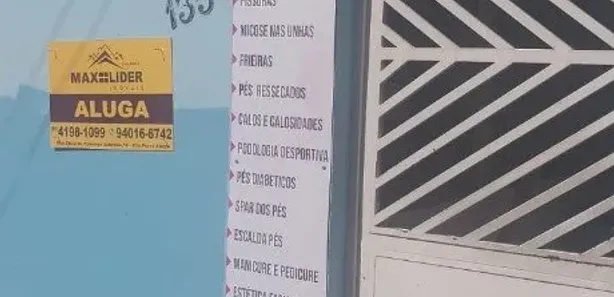 135
MAX LIDER
IMÓVEIS
ALUGA
4198-1099 94016-6742
FISSURAS
MICOSE NAS UNHAS
FRIEIRAS
PÉS RESSECADOS
CALOS E CALOSIDADES
PODOLOGIA DESPORTIVA
PÉS DIABETICOS
SPAR DOS PÉS
ESCALDA PÉS
MANICURE E PEDICURE
ESTÉTICA